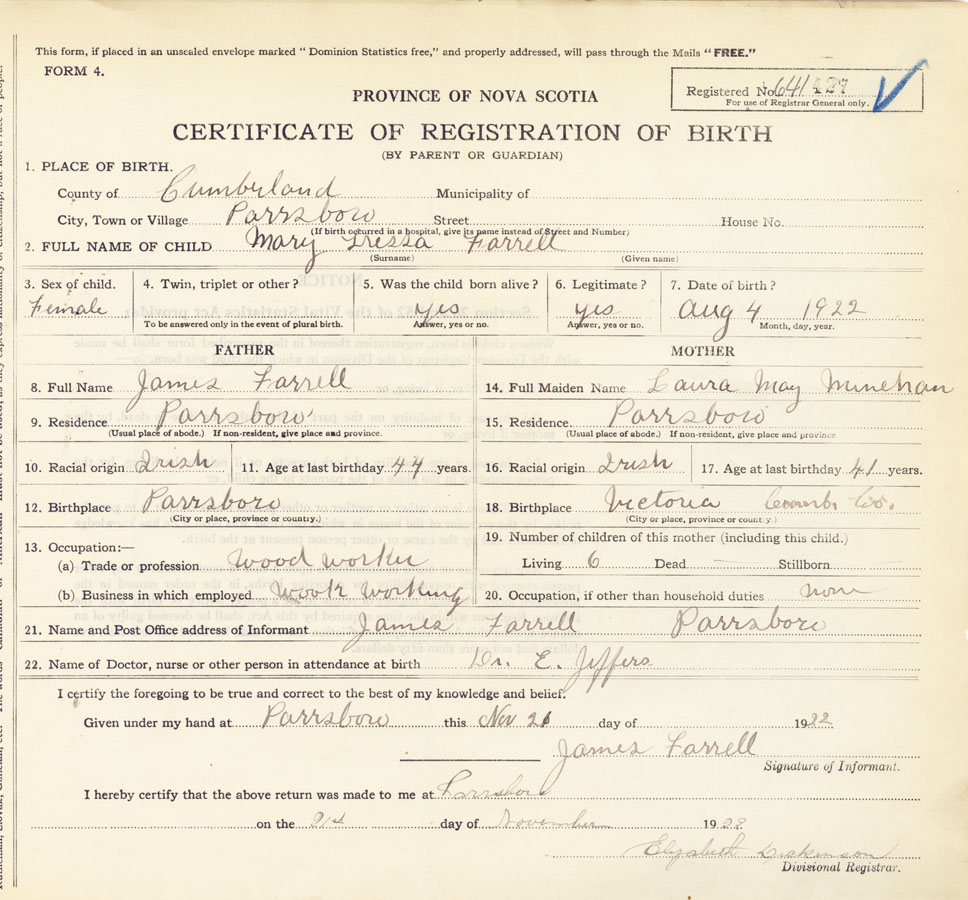 This form, if placed in an unsealed envelope marked "Dominion Statistics free," and properly addressed, will pass through the Mails "FREE."
FORM 4.
Registered No. 641
For use of Registrar General only.
PROVINCE OF NOVA SCOTIA
CERTIFICATE OF REGISTRATION OF BIRTH
(BY PARENT OR GUARDIAN)
1. PLACE OF BIRTH.
County of Cumberland Municipality of
City, Town or Village Parrsboro Street House No.
(If birth occurred in a hospital, give its name instead of Street and Number)
2. FULL NAME OF CHILD Mary Tressa Farrell
(Surname) (Given name)
3. Sex of child. 4. Twin, triplet or other? 5. Was the child born alive? 6. Legitimate? 7. Date of birth?
Female yes yes Aug 4 1922
To be answered only in the event of plural birth. Answer, yes or no. Answer, yes or no. Month, day, year.
FATHER MOTHER
8. Full Name James Farrell 14. Full Maiden Name Laura May Minehan
9. Residence Parrsboro 15. Residence Parrsboro
(Usual place of abode.) If non-resident, give place and province. (Usual place of abode.) If non-resident, give place and province
10. Racial origin Irish 11. Age at last birthday 44 years. 16. Racial origin Irish 17. Age at last birthday 41 years.
12. Birthplace Parrsboro 18. Birthplace Victoria Cumb. Co.
(City or place, province or country.) (City or place, province or country.)
13. Occupation:— 19. Number of children of this mother (including this child.)
(a) Trade or profession Wood worker Living 6 Dead — Stillborn —
(b) Business in which employed Wook working 20. Occupation, if other than household duties none
21. Name and Post Office address of Informant James Farrell Parrsboro
22. Name of Doctor, nurse or other person in attendance at birth Dr. E. Jeffers
I certify the foregoing to be true and correct to the best of my knowledge and belief.
Given under my hand at Parrsboro this Nov 21 day of 1922
James Farrell
Signature of Informant.
I hereby certify that the above return was made to me at Parrsboro
on the 21st day of November 1922
Elizabeth Dickinson
Divisional Registrar.